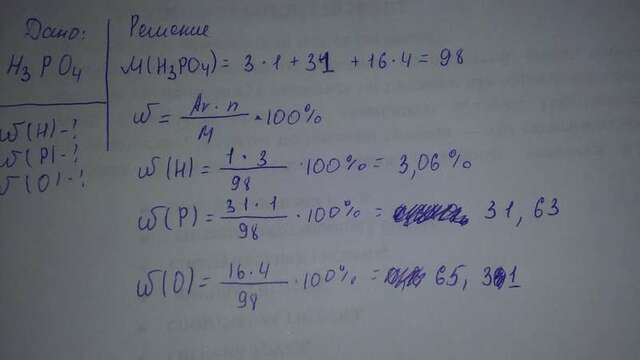 Дано:
H₃PO₄
ω(H)-?
ω(P)-?
ω(O)-?
Решение
M(H₃PO₄) = 3·1 + 31 + 16·4 = 98
ω = Ar·n / M · 100%
ω(H) = 1·3 / 98 · 100% = 3,06%
ω(P) = 31·1 / 98 · 100% = 31,63
ω(O) = 16·4 / 98 · 100% = 65,31